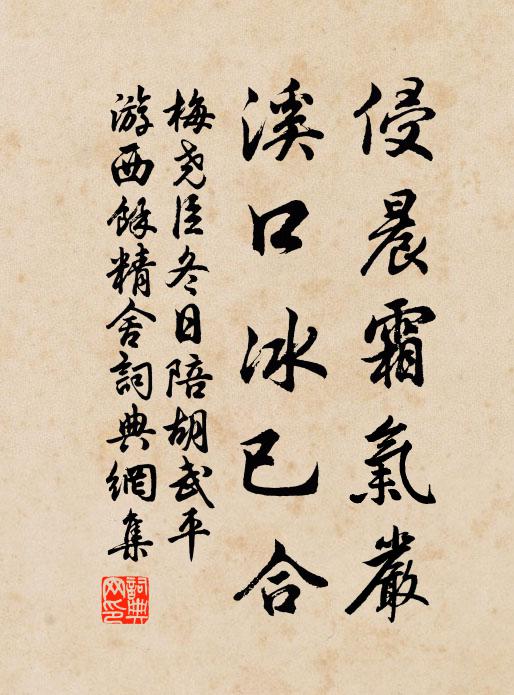 侵晨霜氣嚴
溪口冰已合
梅堯臣冬日陪胡武平
游西餘精舍詞典網集
詞典网印